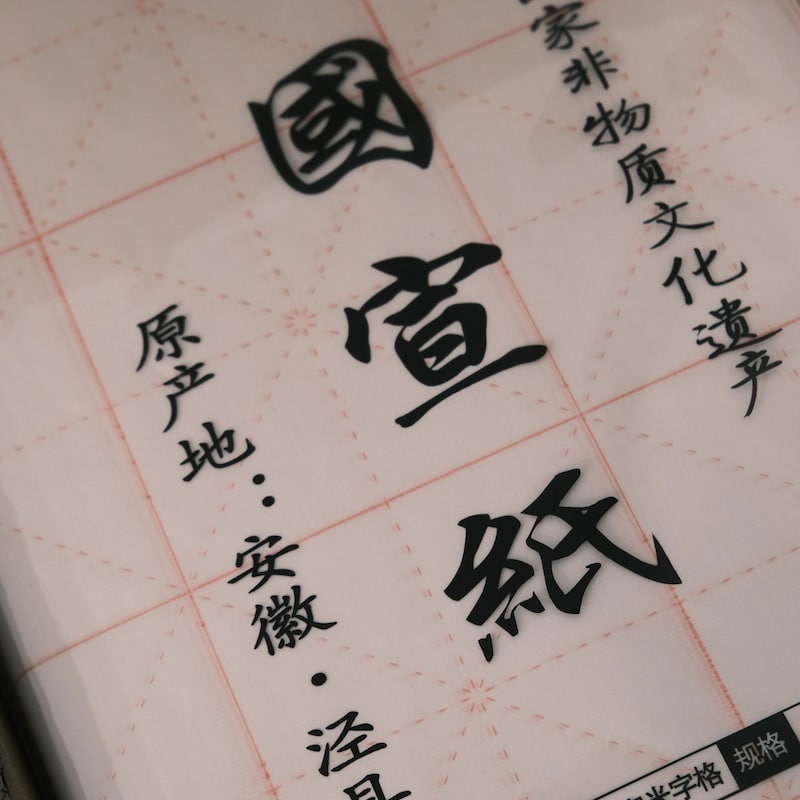 家非物质文化遗产
國宣紙
原产地：安徽·泾县
米字格
规格